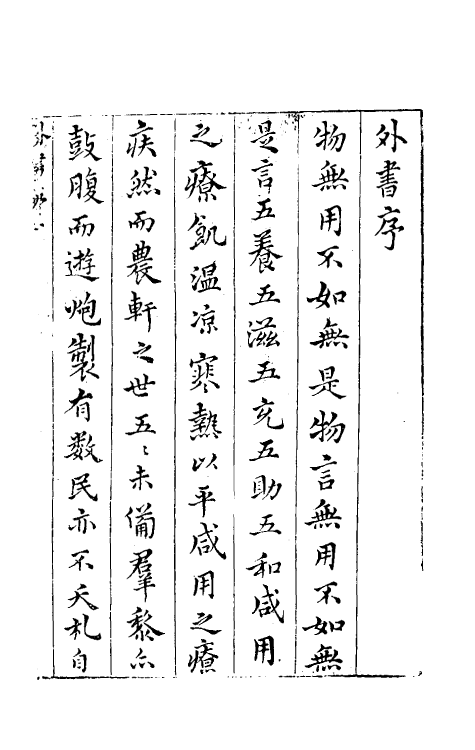 外書序
物無用不如無是物言無用不如無
是言五養五滋五充五助五和咸用
之療飢温凉寒熱以平咸用之療
疾然而農軒之世五〻未備羣黎亦
鼓腹而遊炮製有数民亦不夭札自
外書